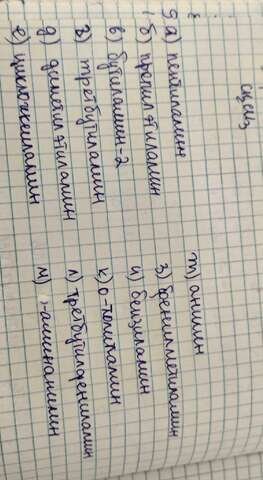 а) пентиламин
б) пропил этиламин
в) бутиламин-2
г) третбутиламин
д) диметил этиламин
е) циклогексиламин
ж) анилин
з) фенилметиламин
и) бензиламин
к) о-толиламин
л) третбутилфениламин
м)